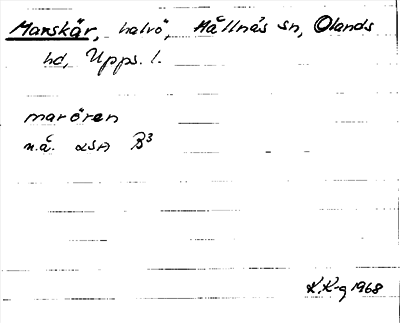 Marskär, halvö, Hållnäs sn, Olands
hd, Upps. l.
marören
n.å. LSA B3
K.K-g 1968